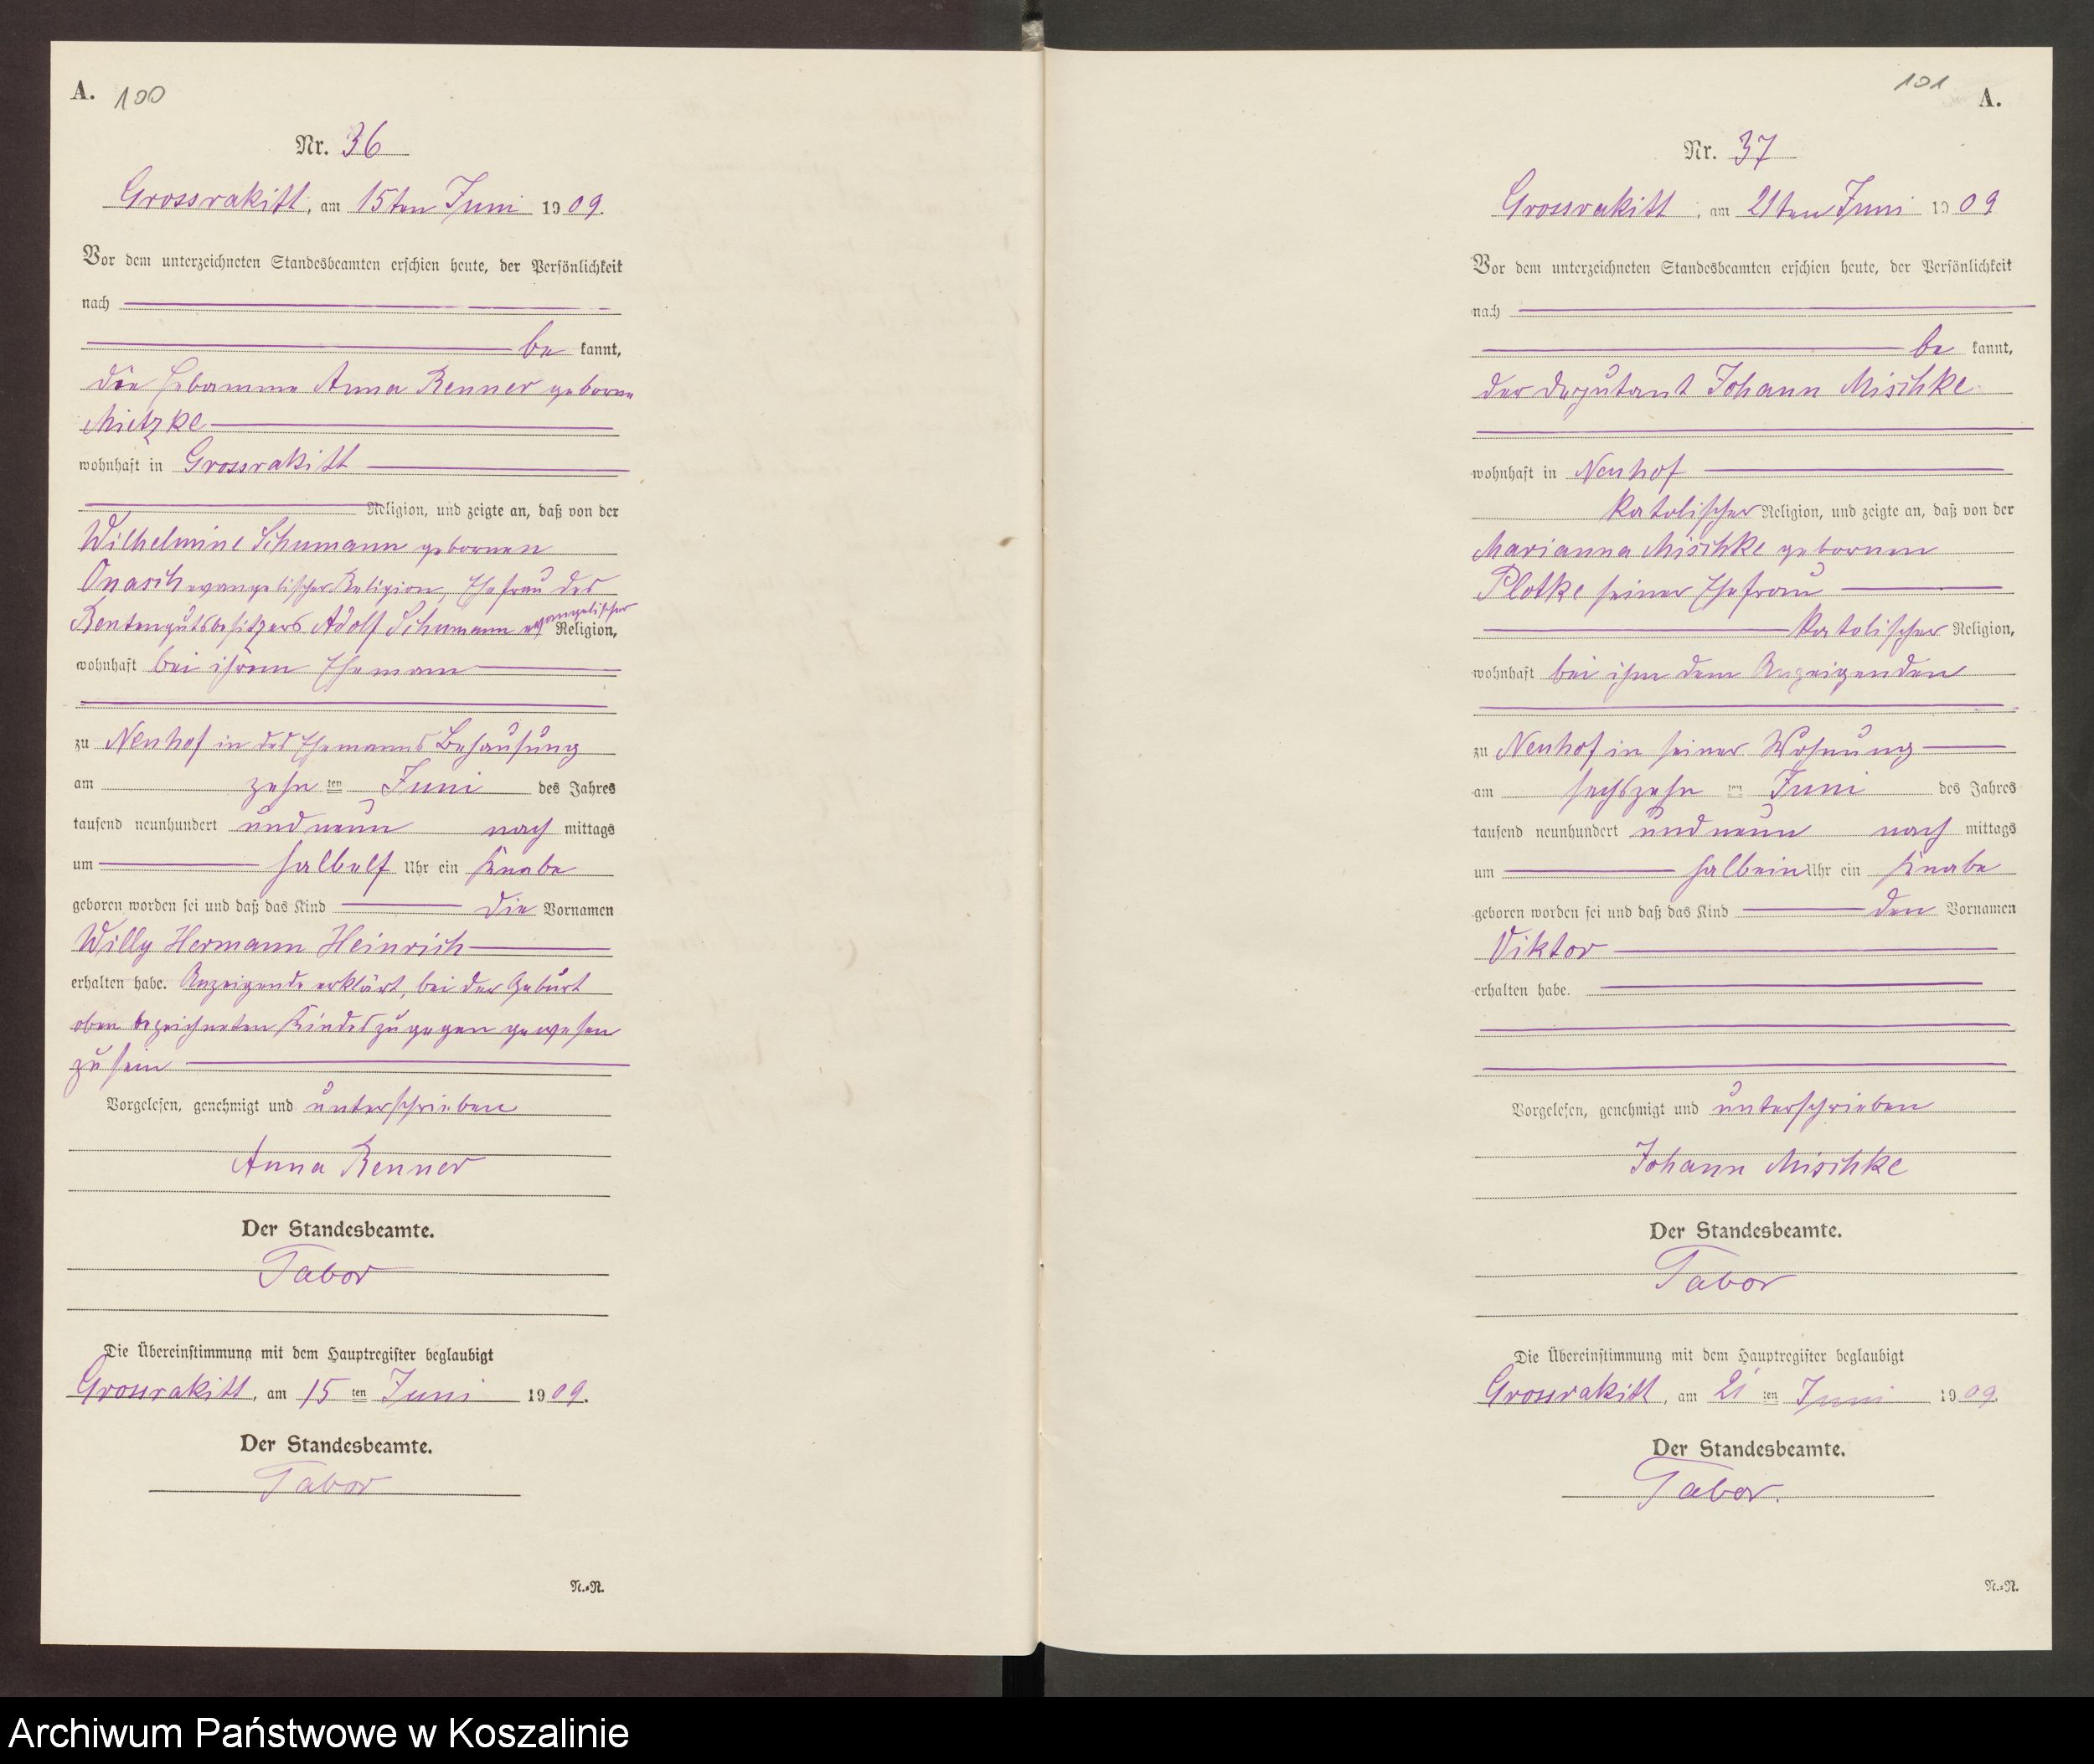 A. 100
Nr. 36
Grossrakitt, am 15ten Juni 1909.
Vor dem unterzeichneten Standesbeamten erschien heute, der Persönlichkeit
nach
be kannt,
die Hebamme Anna Renner geborene
Mietzke
wohnhaft in Grossrakitt
Religion, und zeigte an, daß von der
Wilhelmine Schumann gebornen
Onasch evangelischer Religion, Ehefrau des
Rentengutsbesitzers Adolf Schumann evangelischer Religion,
wohnhaft bei ihrem Ehemann
zu Neuhof in des Ehemanns Behausung
am zehn ten Juni des Jahres
tausend neunhundert und neun nach mittags
um halb elf Uhr ein Knabe
geboren worden sei und daß das Kind die Vornamen
Willy Hermann Heinrich
erhalten habe. Anzeigende erklärt, bei der Geburt
oben bezeichneten Kindes zugegen gewesen
zu sein
Vorgelesen, genehmigt und unterschrieben
Anna Renner
Der Standesbeamte.
Tabor
Die Übereinstimmung mit dem Hauptregister beglaubigt
Grossrakitt, am 15 ten Juni 1909.
Der Standesbeamte.
Tabor
N.=N.
101 A.
Nr. 37
Grossrakitt, am 21ten Juni 1909
Vor dem unterzeichneten Standesbeamten erschien heute, der Persönlichkeit
nach
be kannt,
der Deputant Johann Mischke
wohnhaft in Neuhof
katolischer Religion, und zeigte an, daß von der
Marianna Mischke gebornen
Plotke seiner Ehefrau
katolischer Religion,
wohnhaft bei ihm dem Anzeigenden
zu Neuhof in seiner Wohnung
am sechszehn ten Juni des Jahres
tausend neunhundert und neun nach mittags
um halb ein Uhr ein Knabe
geboren worden sei und daß das Kind den Vornamen
Viktor
erhalten habe.
Vorgelesen, genehmigt und unterschrieben
Johann Mischke
Der Standesbeamte.
Tabor
Die Übereinstimmung mit dem Hauptregister beglaubigt
Grossrakitt, am 21 ten Juni 1909.
Der Standesbeamte.
Tabor.
N.=N.
Archiwum Państwowe w Koszalinie